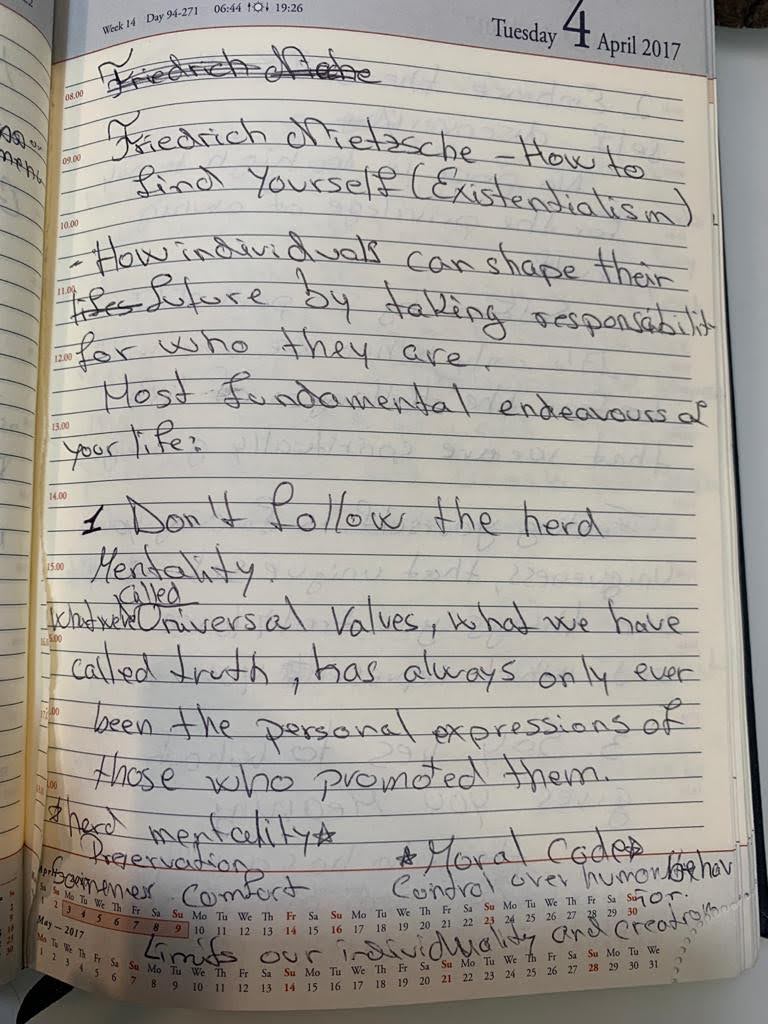 Week 14 Day 94-271 06:44 19:26
Tuesday 4 April 2017
08.00
Friedrich Nietche
09.00
Friedrich Nietzsche - How to
find yourself (Existentialism)
10.00
- How individuals can shape their
11.00
lifes future by taking responsability
12.00 for who they are.
Most fundamental endeavours of
13.00
your life:
14.00
1 Don't follow the herd
15.00 Mentality.
called
What we've Universal Values, what we have
called truth, has always only ever
been the personal expressions of
those who promoted them.
herd mentality
Preservation
Moral Code
Sameness Comfort
Control over human behavior.
Su Mo Tu We Th Fr Sa Su Mo Tu We Th Fr Sa Su Mo Tu We Th Fr Sa Su Mo Tu We Th Fr Sa Su
1 2 3 4 5 6 7 8 9 10 11 12 13 14 15 16 17 18 19 20 21 22 23 24 25 26 27 28 29 30
May - 2017
Limits our individuality and
Mo Tu We Th Fr Sa Su Mo Tu We Th Fr Sa Su Mo Tu We Th Fr Sa Su Mo Tu We Th Fr Sa Su Mo Tu We
1 2 3 4 5 6 7 8 9 10 11 12 13 14 15 16 17 18 19 20 21 22 23 24 25 26 27 28 29 30 31